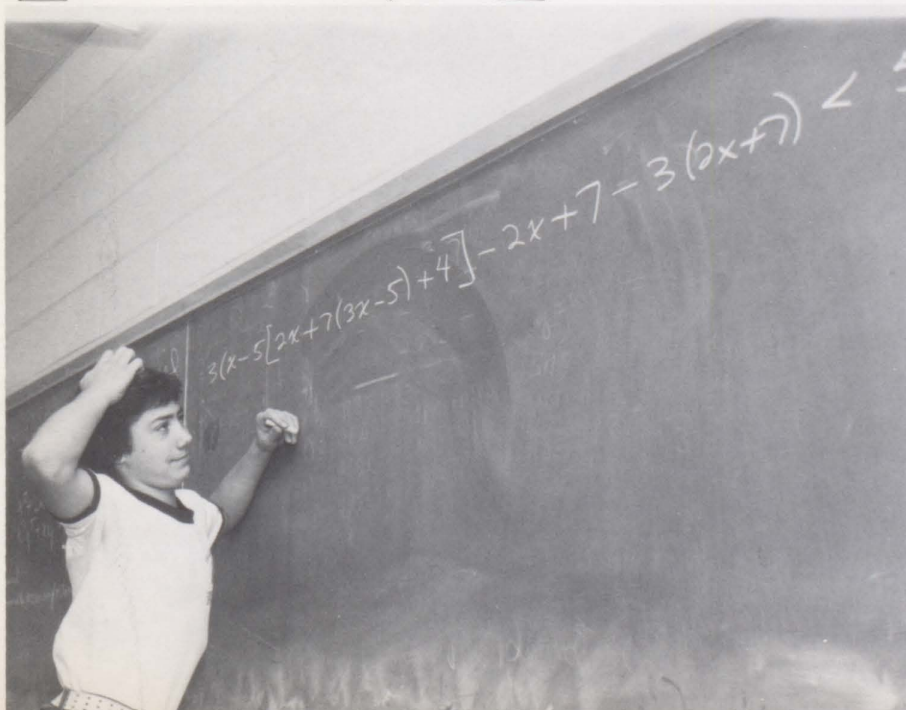 3(x-5[2x+7(3x-5)+4]-2x+7-3(2x+7) <